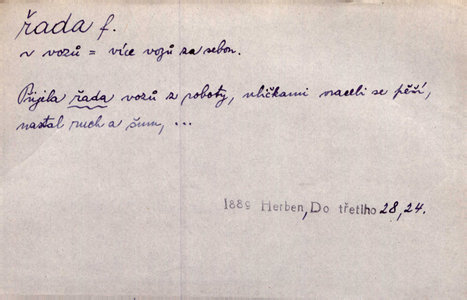 řada f.
ř vozů = více vozů za sebou.
Přijela řada vozů z roboty, uličkami vraceli se pěší,
nastal ruch a šum, ...
1889 Herben, Do třetího 28, 24.